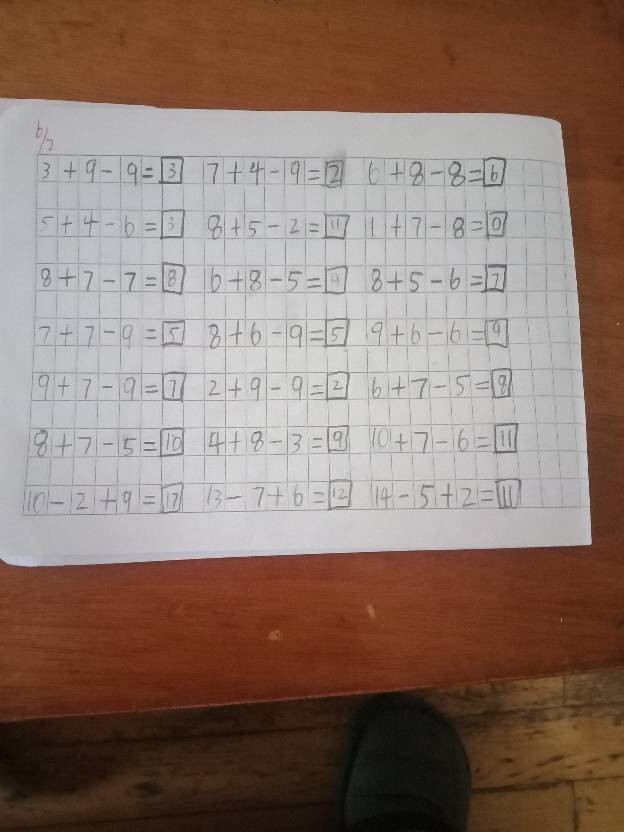 6/2
3+9-9=3 7+4-9=2 6+8-8=6
5+4-6=3 8+5-2=11 1+7-8=0
8+7-7=8 6+8-5=9 8+5-6=7
7+7-9=5 8+6-9=5 9+6-6=9
9+7-9=7 2+9-9=2 6+7-5=8
8+7-5=10 4+8-3=9 10+7-6=11
10-2+9=17 13-7+6=12 14-5+2=11